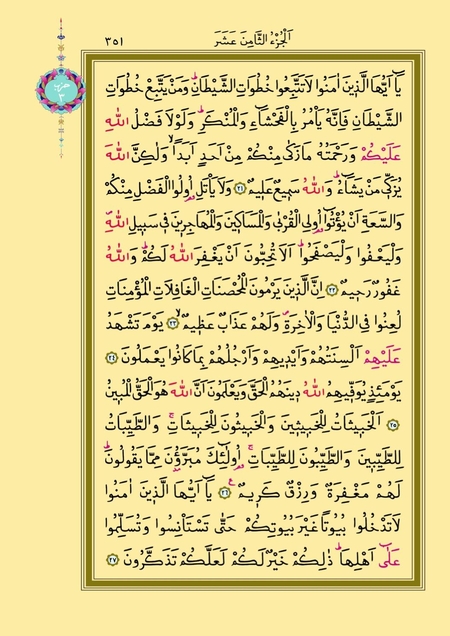 اَلْجُزْءُ الثَّامِنَ عَشَرَ ٣٥١
حزب
٣
يَٓا اَيُّهَا الَّذ۪ينَ اٰمَنُوا لَا تَتَّبِعُوا خُطُوَاتِ الشَّيْطَانِۜ وَمَنْ يَتَّبِعْ خُطُوَاتِ
الشَّيْطَانِ فَاِنَّهُ يَأْمُرُ بِالْفَحْشَٓاءِ وَالْمُنْكَرِۜ وَلَوْلَا فَضْلُ اللّٰهِ
عَلَيْكُمْ وَرَحْمَتُهُ مَا زَكٰى مِنْكُمْ مِنْ اَحَدٍ اَبَداًۙ وَلٰكِنَّ اللّٰهَ
يُزَكّ۪ي مَنْ يَشَٓاءُۜ وَاللّٰهُ سَم۪يعٌ عَل۪يمٌ ﴿٢١﴾ وَلَا يَأْتَلِ اُو۬لُوا الْفَضْلِ مِنْكُمْ
وَالسَّعَةِ اَنْ يُؤْتُٓوا اُو۬لِي الْقُرْبٰى وَالْمَسَاك۪ينَ وَالْمُهَاجِر۪ينَ ف۪ي سَب۪يلِ اللّٰهِۖ
وَلْيَعْفُوا وَلْيَصْفَحُواۜ اَلَا تُحِبُّونَ اَنْ يَغْفِرَ اللّٰهُ لَكُمْۜ وَاللّٰهُ
غَفُورٌ رَح۪يمٌ ﴿٢٢﴾ اِنَّ الَّذ۪ينَ يَرْمُونَ الْمُحْصَنَاتِ الْغَافِلَاتِ الْمُؤْمِنَاتِ
لُعِنُوا فِي الدُّنْيَا وَالْاٰخِرَةِۖ وَلَهُمْ عَذَابٌ عَظ۪يمٌۙ ﴿٢٣﴾ يَوْمَ تَشْهَدُ
عَلَيْهِمْ اَلْسِنَتُهُمْ وَاَيْد۪يهِمْ وَاَرْجُلُهُمْ بِمَا كَانُوا يَعْمَلُونَ ﴿٢٤﴾
يَوْمَئِذٍ يُوَفّ۪يهِمُ اللّٰهُ د۪ينَهُمُ الْحَقَّ وَيَعْلَمُونَ اَنَّ اللّٰهَ هُوَ الْحَقُّ الْمُب۪ينُ
﴿٢٥﴾ اَلْخَب۪يثَاتُ لِلْخَب۪يث۪ينَ وَالْخَب۪يثُونَ لِلْخَب۪يثَاتِۚ وَالطَّيِّبَاتُ
لِلطَّيِّب۪ينَ وَالطَّيِّبُونَ لِلطَّيِّبَاتِۚ اُو۬لٰٓئِكَ مُبَرَّؤُ۫نَ مِمَّا يَقُولُونَۜ
لَهُمْ مَغْفِرَةٌ وَرِزْقٌ كَر۪يمٌ۟ ﴿٢٦﴾ يَٓا اَيُّهَا الَّذ۪ينَ اٰمَنُوا
لَا تَدْخُلُوا بُيُوتاً غَيْرَ بُيُوتِكُمْ حَتّٰى تَسْتَأْنِسُوا وَتُسَلِّمُوا
عَلٰٓى اَهْلِهَاۜ ذٰلِكُمْ خَيْرٌ لَكُمْ لَعَلَّكُمْ تَذَكَّرُونَ ﴿٢٧﴾